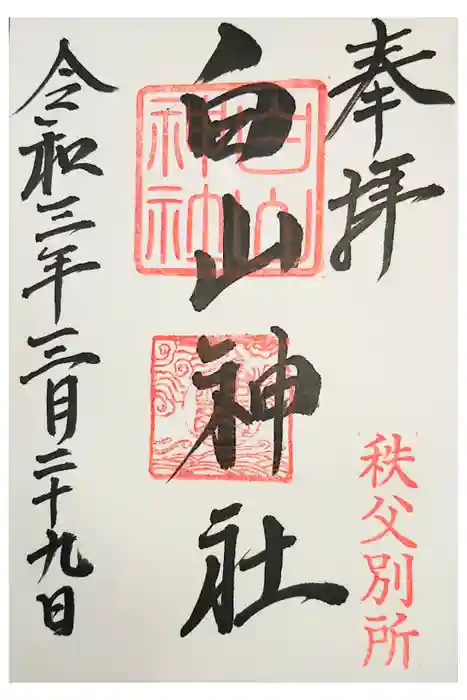 奉拝
秩父別所
白山神社
白山神社
令和三年三月二十九日